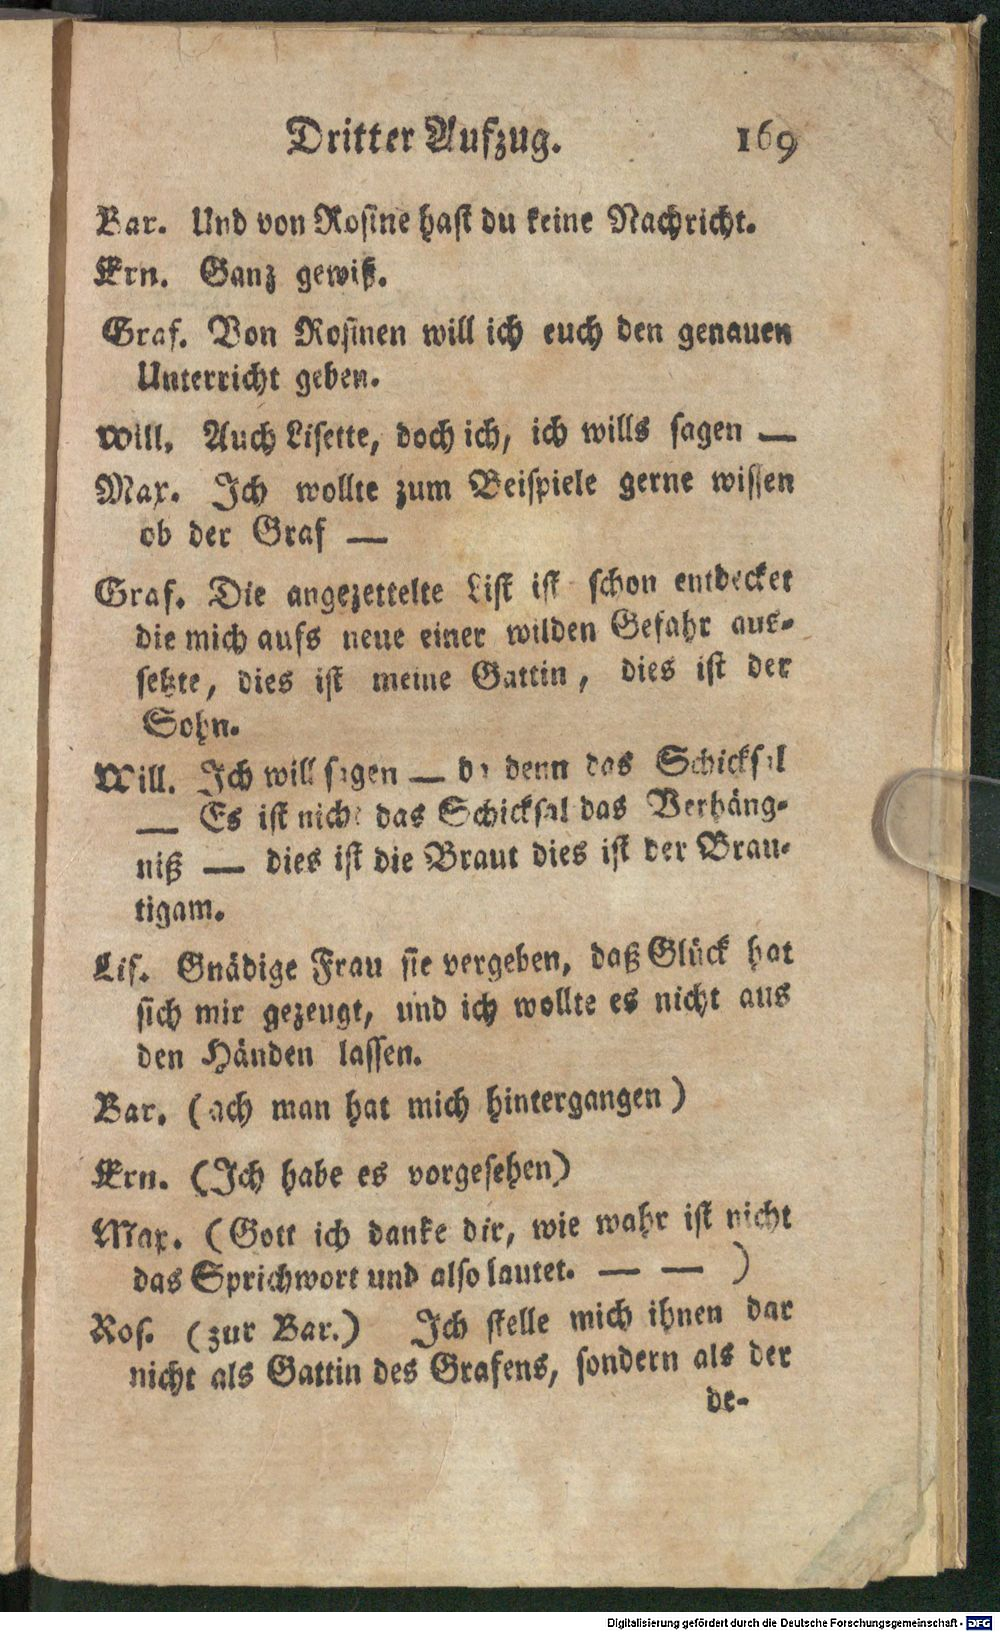 Dritter Aufzug. 169
Bar. Und von Rosine hast du keine Nachricht.
Ern. Ganz gewiß.
Graf. Von Rosinen will ich euch den genauen
Unterricht geben.
Will. Auch Lisette, doch ich, ich wills sagen —
Max. Ich wollte zum Beispiele gerne wissen
ob der Graf —
Graf. Die angezettelte List ist schon entdecket
die mich aufs neue einer wilden Gefahr aus-
setzte, dies ist meine Gattin, dies ist der
Sohn.
Will. Ich will sagen — da denn das Schicksal
— Es ist nicht das Schicksal das Verhäng-
niß — dies ist die Braut dies ist der Bräu-
tigam.
Lis. Gnädige Frau sie vergeben, daß Glück hat
sich mir gezeugt, und ich wollte es nicht aus
den Händen lassen.
Bar. (ach man hat mich hintergangen)
Ern. (Ich habe es vorgesehen)
Max. (Gott ich danke dir, wie wahr ist nicht
das Sprichwort und also lautet. — — )
Ros. (zur Bar.) Ich stelle mich ihnen dar
nicht als Gattin des Grafens, sondern als der
de-
Digitalisierung gefördert durch die Deutsche Forschungsgemeinschaft - DFG